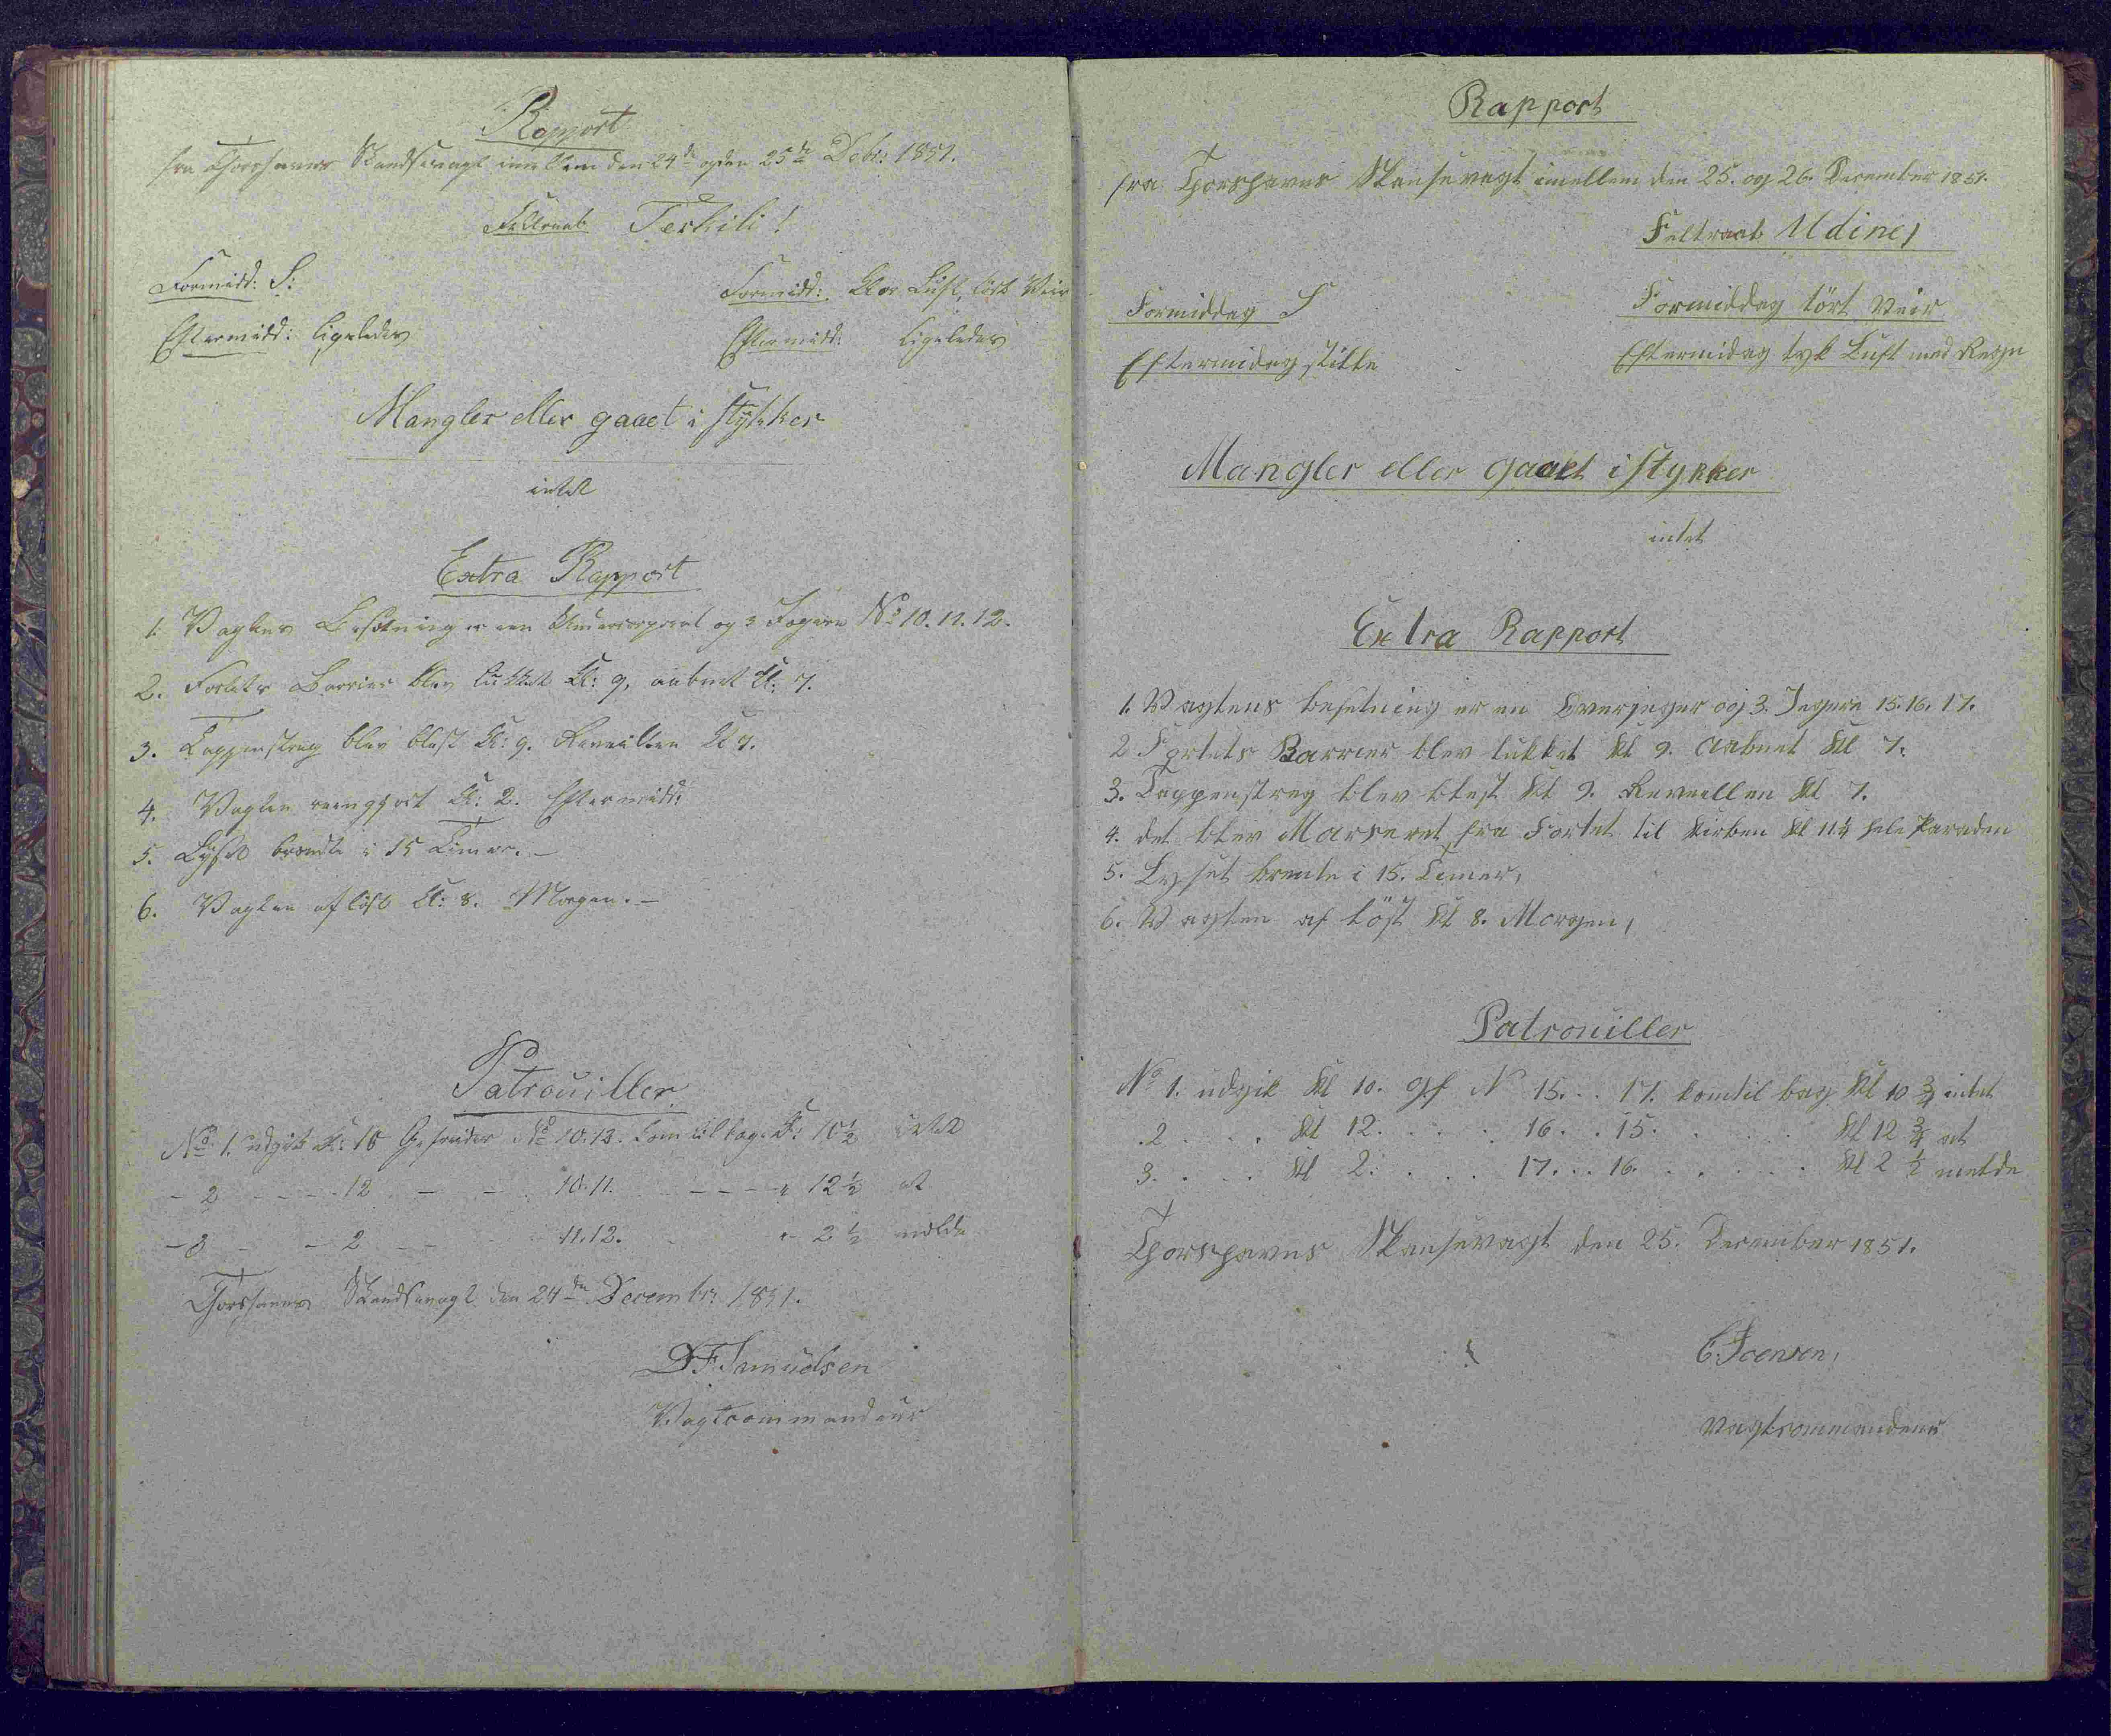 Rapport
fra Thorshavns Skandsevagt imellem den 24de og den 25de Decbr: 1851.
Feltraab Teskili!
Formidd: S:
Formidd: Klar Luft, tört Veir
Eftermidd: ligeledes
Eftermidd: ligeledes
Mangler eller gaaet i stykker
intet
Extra Rapport
1. Vagtens Besætning er een Undercorporal og 3 Jægere No 10. 11. 12.
2. Fortets Barrier blev lukket Kl: 9, aabnet Kl: 7.
3. Tappenstreg blev blæst Kl: 9. Reveillen Kl 7.
4. Vagten reengjort Kl: 2. Eftermidd:
5. Lyset brændte i 15 Timer. –
6. Vagten aflöst Kl: 8. Morgen. –
Patrouiller
No 1. udgik Kl: 10 Gefreider No 10. 12. kom tilbage Kl: 10½ intet
– 2 – – – – 12 – – 10. 11. – – – – " 12½ at
– 3 – – 2 – – 11. 12. " 2½ melde
Thorshavns Skandsevagt den 24de Decembr: 1851.
Vagtcommandeur
Rapport
fra Thorshavns Skansevagt imellem den 25. og 26. December 1851.
Feltraab Udine,
Formiddag S
Formiddag tört Veir
Eftermidag stille
Eftermidag tyk Luft med Regn
Mangler eller gaaet i stykker
intet
Extra Rapport
1. Vagtens besetning er en Overjeger og 3. Jegere 15. 16. 17.
2 Fortets Barrier blev lukket Kl 9. aabnet Kl 7.
3. Tappenstreg blev blest Kl 9. Reveillen Kl 7.
4. det blev Marseret fra Fortet til Kirken Kl 11¼ hele Paraden
5. Lyset brente i 15. Timer,
6. Vagten af löst Kl 8. Morgen,
Patrouiller
No 1. udgik Kl 10. Gf N 15. . . 17. kom til bag Kl 10 ¾ intet
2 . . . Kl 12. . . . . 16. . . 15. . . . . Kl 12 ¾ at
3. . . . Kl 2. . . . . 17. . . 16. . . . . . Kl 2 ½ melde
Thorshavns Skansevagt den 25. December 1851.
C. Joensen,
Vagtcommandeur